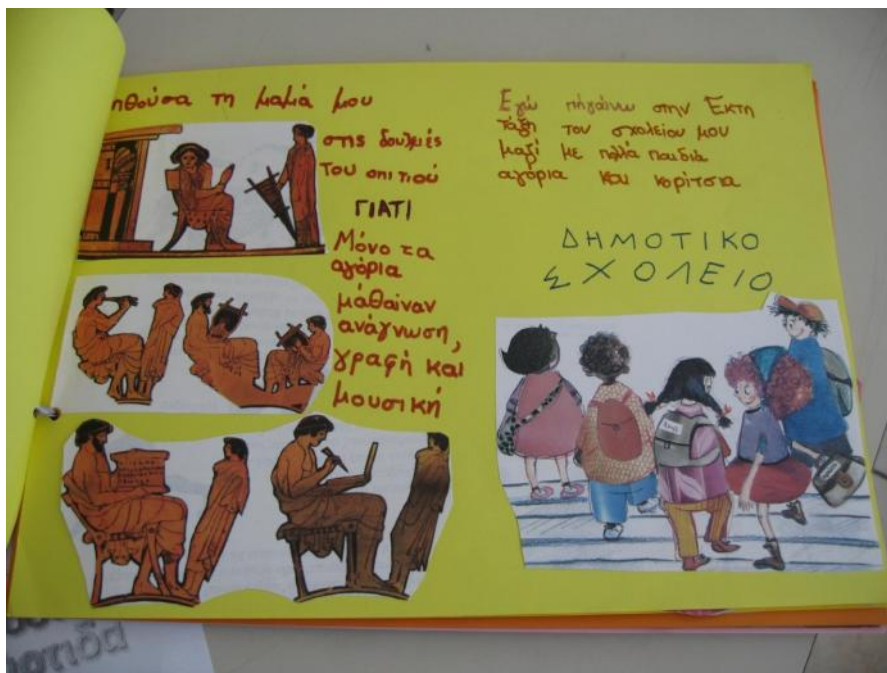 ηθούσα τη μαμά μου
στις δουλειές
του σπιτιού
ΓΙΑΤΙ
Μόνο τα
αγόρια
μάθαιναν
ανάγνωση,
γραφή και
μουσική
Εγώ πηγαίνω στην Έκτη
τάξη του σχολείου μου
μαζί με πολλά παιδιά
αγόρια και κορίτσια
ΔΗΜΟΤΙΚΟ
ΣΧΟΛΕΙΟ